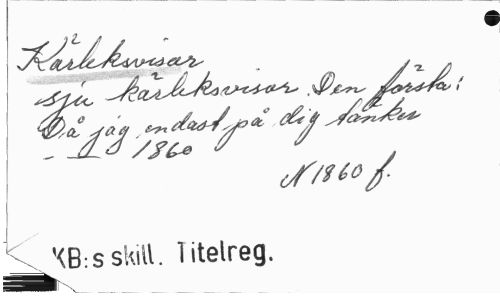 Kärleksvisor
sju kärleksvisor. Den första:
Då jag endast på dig tänker
- — 1860
N 1860 f.
KB:s skill. Titelreg.